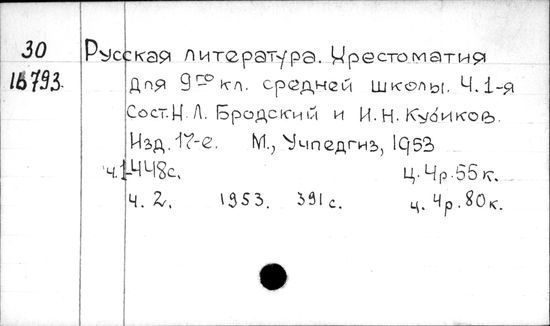 30 Русская литература. Хрестоматия
1Б793. для 9го кл. средней школы. Ч.1-я
Сост. Н.Л. Бродский и И.Н. Кубиков.
Изд. 17-е. М., Учпедгиз, 1953
ч.1-448с. Ц. 4р.55к.
ч. 2. 1953. 391 с. ц. 4р.80к.